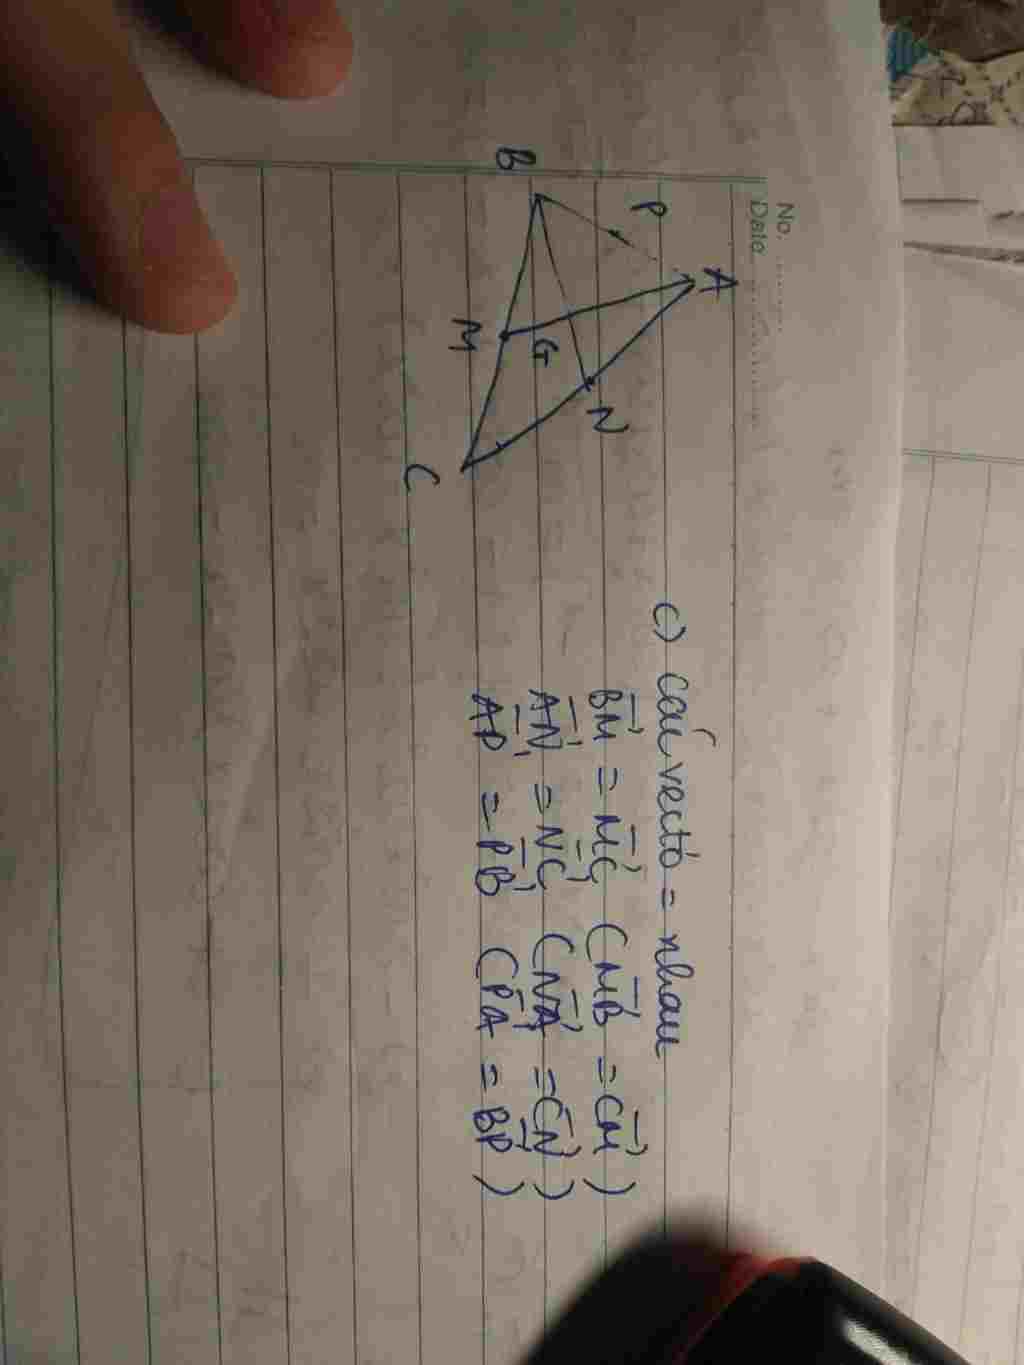 No.
Date
A
P
B
N
G
M
C
c) các vectơ = nhau
BM = MC (MB = CM)
AN = NC (NA = CN)
AP = PB (PA = BP)